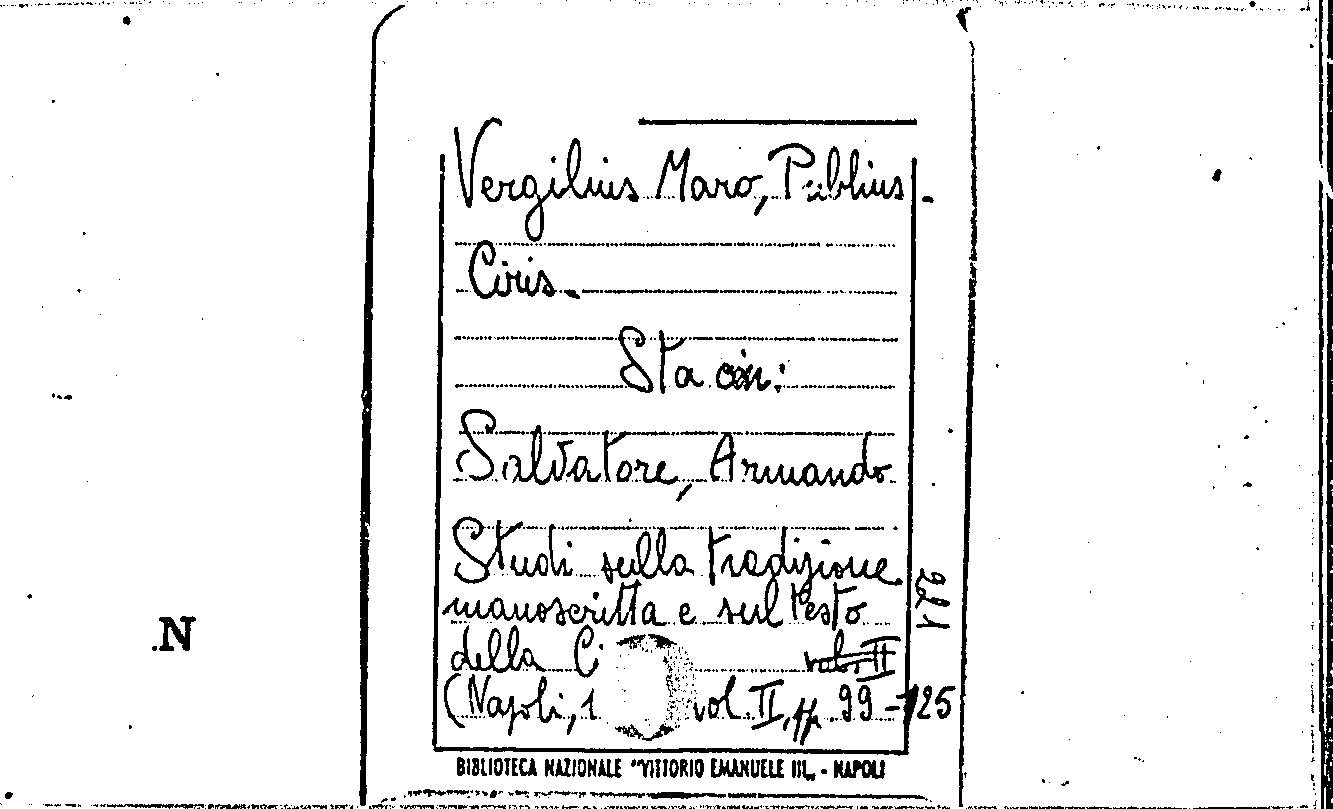 Vergilius Maro, Publius.
Ciris.
Sta in:
Salvatore, Armando
Studi sulla tradizione
manoscritta e sul testo
della Ci vol. II
(Napoli, 1 vol. II, pp. 99-125
221
.N
BIBLIOTECA NAZIONALE "VITTORIO EMANUELE III„ - NAPOLI